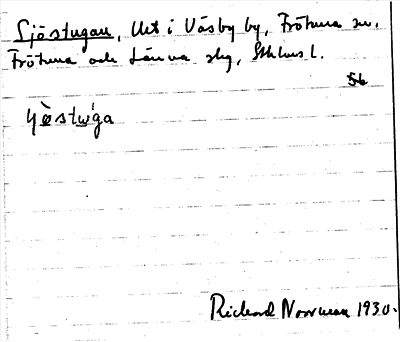 Sjöstugan, Urt i Väsby by, Frötuna sn.
Frötuna och Länna skg, Sthlms l.
56
Richard Norrman 1930.